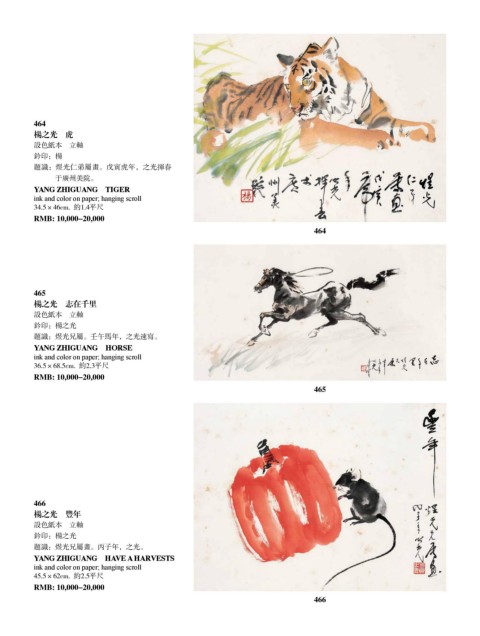 464
楊之光　虎
設色紙本　立軸
鈐印：楊
題識：煋光仁弟屬畫。戊寅虎年，之光揮春
于廣州美院。
YANG ZHIGUANG　TIGER
ink and color on paper; hanging scroll
34.5 × 46cm. 約1.4平尺
RMB: 10,000–20,000
464
465
楊之光　志在千里
設色紙本　立軸
鈐印：楊之光
題識：煋光兄屬。壬午馬年，之光速寫。
YANG ZHIGUANG　HORSE
ink and color on paper; hanging scroll
36.5 × 68.5cm. 約2.3平尺
RMB: 10,000–20,000
465
466
楊之光　豐年
設色紙本　立軸
鈐印：楊之光
題識：煋光兄屬畫。丙子年，之光。
YANG ZHIGUANG　HAVE A HARVESTS
ink and color on paper; hanging scroll
45.5 × 62cm. 約2.5平尺
RMB: 10,000–20,000
466